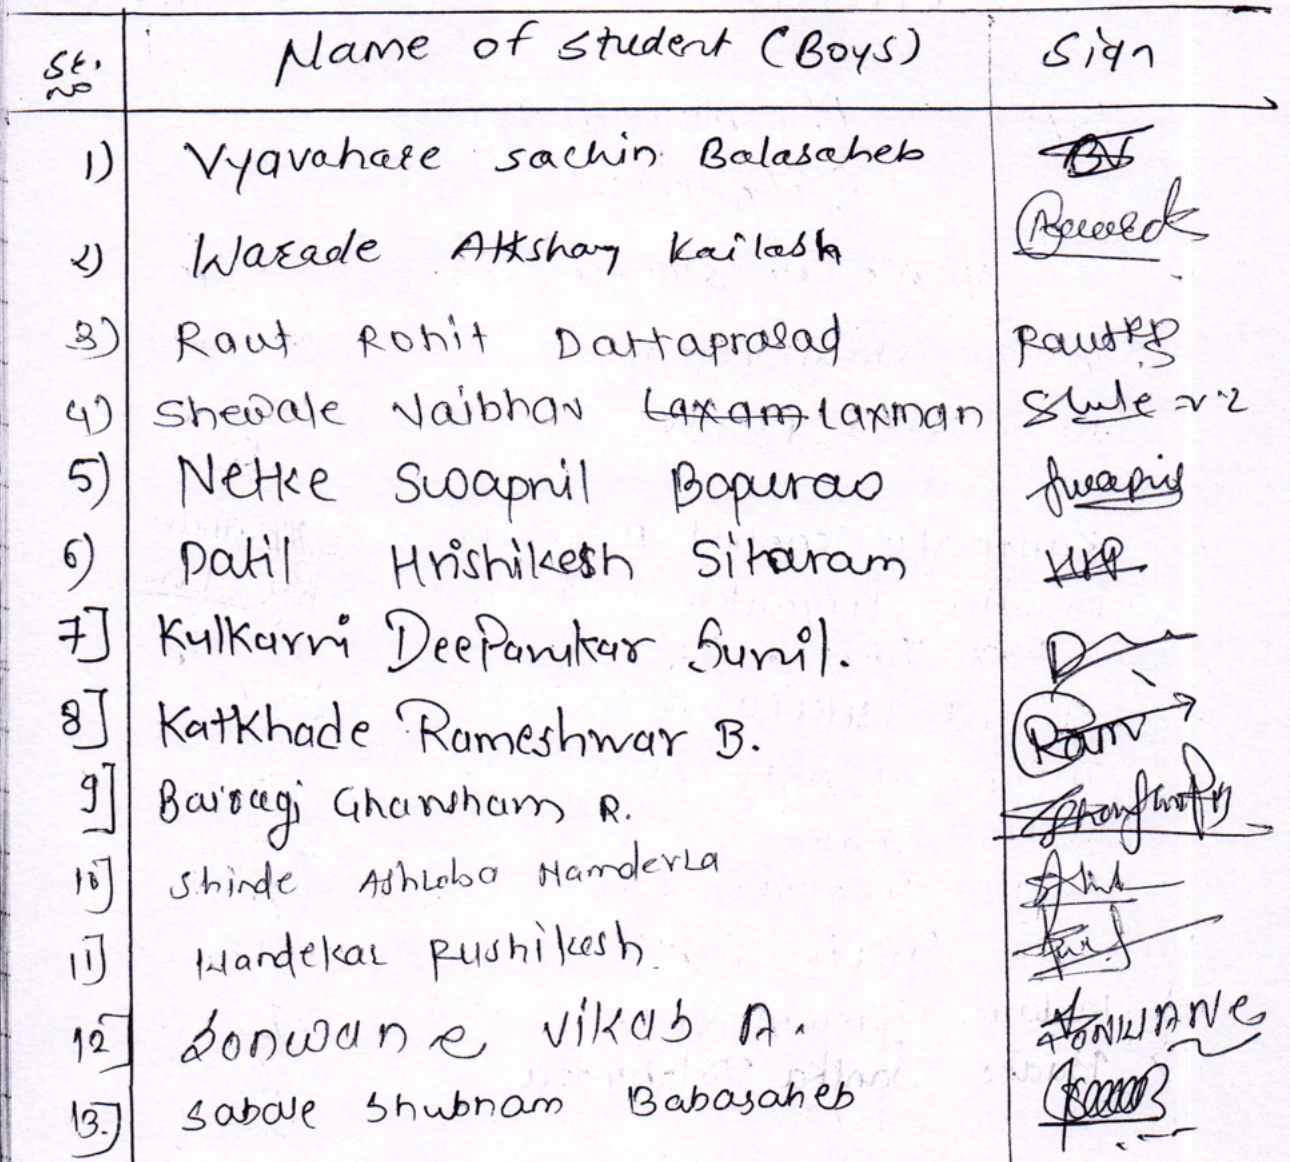 Sr. No Name of Student (Boys) Sign
1) Vyavahare sachin Balasaheb
2) Warade Akshay Kailash
3) Raut Rohit Dattaprasad RautRD
4) Shewale Vaibhav Laxam Laxman
5) Netke Swapnil Bapurao Swapnil
6) Patil Hrishikesh Sitaram HRP
7] Kulkarni DeePankar Sunil. D
8] Katkhade Rameshwar B. Ram
9] Bairagi Ghansham R.
10] Shinde Ashroba
11] Wandekar Rushikesh
12] Sonwane Vikas A. SONWANe
13.] Sabale Shubham Babasaheb